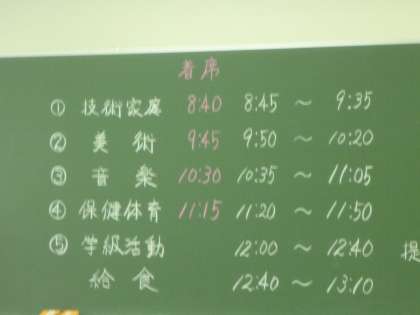 着席
① 技術家庭 8:40 8:45 ～ 9:35
② 美術 9:45 9:50 ～ 10:20
③ 音楽 10:30 10:35 ～ 11:05
④ 保健体育 11:15 11:20 ～ 11:50
⑤ 学級活動 12:00 ～ 12:40 提
給食 12:40 ～ 13:10